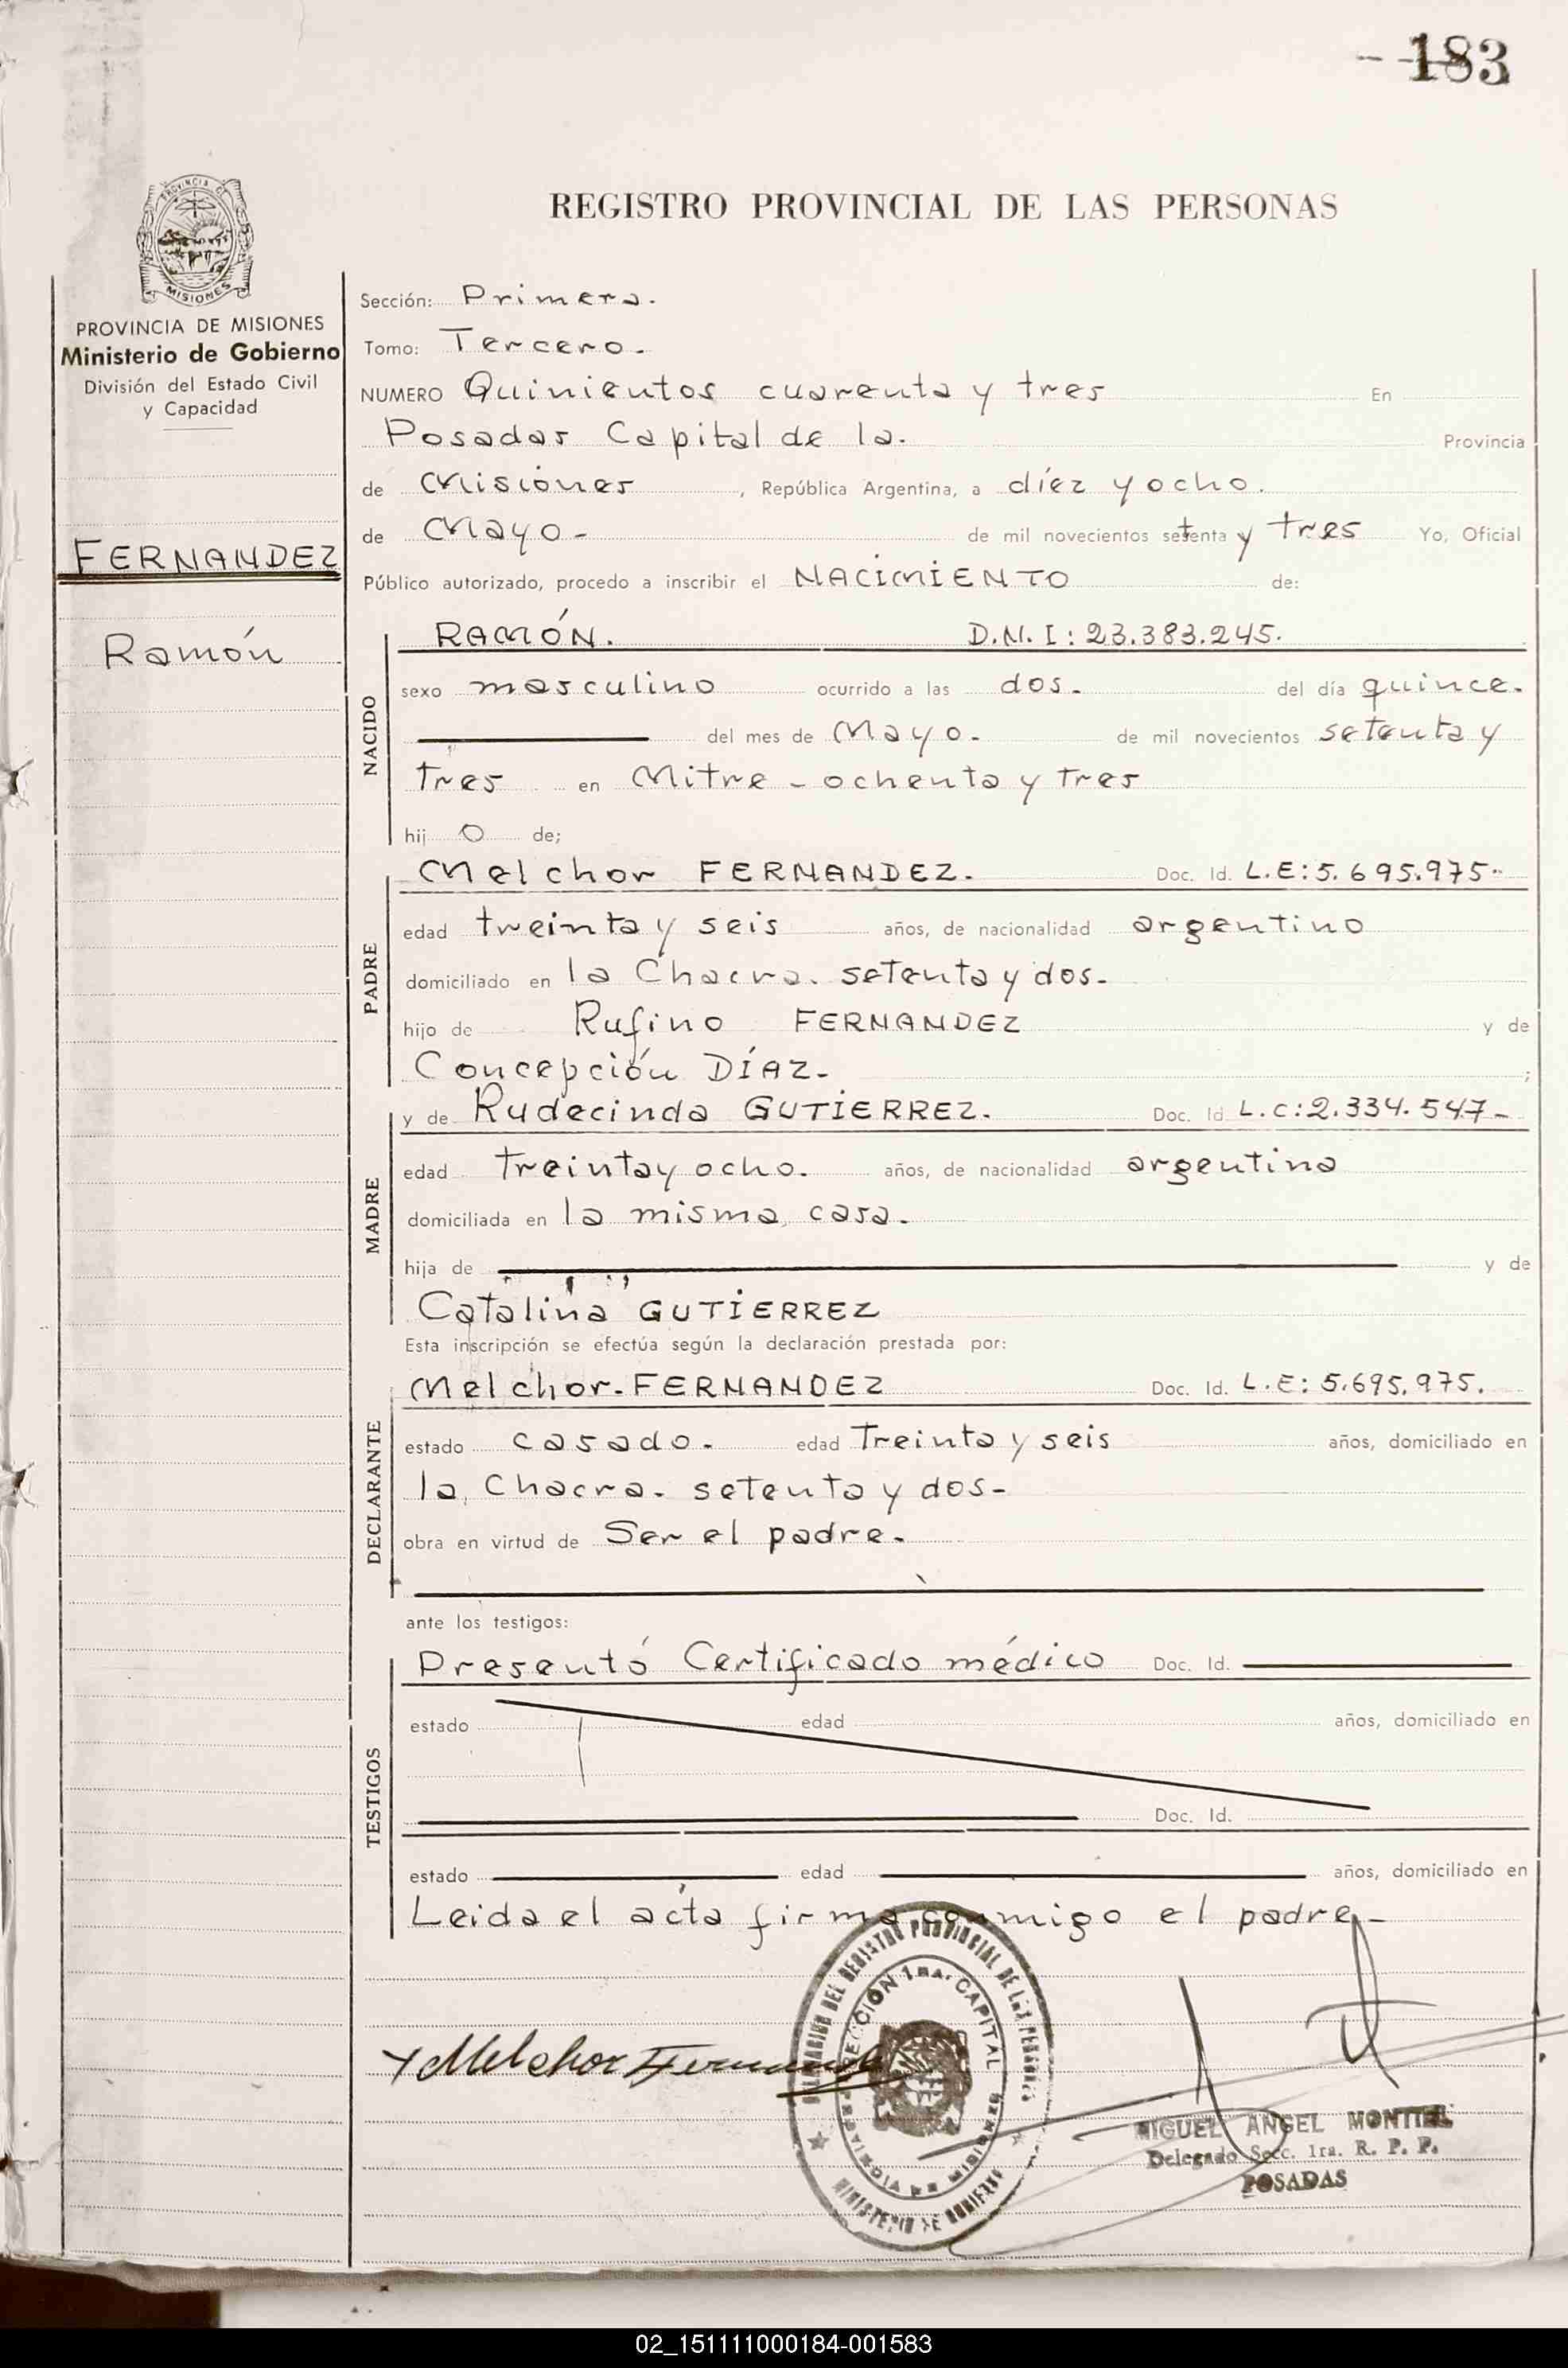 - 183
REGISTRO PROVINCIAL DE LAS PERSONAS
PROVINCIA DE MISIONES
PROVINCIA DE MISIONES
Ministerio de Gobierno
División del Estado Civil
y Capacidad
FERNANDEZ
Ramón
Sección: Primera.
Tomo: Tercero.
NUMERO Quinientos cuarenta y tres En
Posadas Capital de la. Provincia
de Misiones, República Argentina, a diéz y ocho.
de Mayo- de mil novecientos setenta y tres Yo, Oficial
Público autorizado, procedo a inscribir el NACIMIENTO de:
NACIDO
RAMÓN. D.N.I: 23.383.245.
sexo masculino ocurrido a las dos. del día quince.
del mes de Mayo. de mil novecientos setenta y
tres en Mitre - ochenta y tres
hij o de;
PADRE
Melchor FERNANDEZ. Doc. Id. L.E: 5.695.975-
edad treinta y seis años, de nacionalidad argentino
domiciliado en la Chacra. setenta y dos-
hijo de Rufino FERNANDEZ y de
Concepción DÍAZ- ;
MADRE
y de Rudecinda GUTIERREZ. Doc. Id. L.C: 2.334.547-
edad treinta y ocho. años, de nacionalidad argentina
domiciliada en la misma casa.
hija de y de
Catalina GUTIERREZ
Esta inscripción se efectúa según la declaración prestada por:
DECLARANTE
Melchor. FERNANDEZ Doc. Id. L.E: 5.695.975.
estado casado. edad Treinta y seis años, domiciliado en
la Chacra. setenta y dos-
obra en virtud de Ser el padre.
ante los testigos:
TESTIGOS
Presentó Certificado médico Doc. Id.
estado edad años, domiciliado en
Doc. Id.
estado edad años, domiciliado en
Leida el acta firma conmigo el padre-
Melchor Fernandez
DEL REGISTRO PROVINCIAL DE LAS PERSONAS
SECCION 1RA. CAPITAL
PROVINCIA DE MISIONES
MINISTERIO DE GOBIERNO
MIGUEL ANGEL MONTIEL
Delegado Secc. 1ra. R. P. P.
POSADAS
02_151111000184-001583